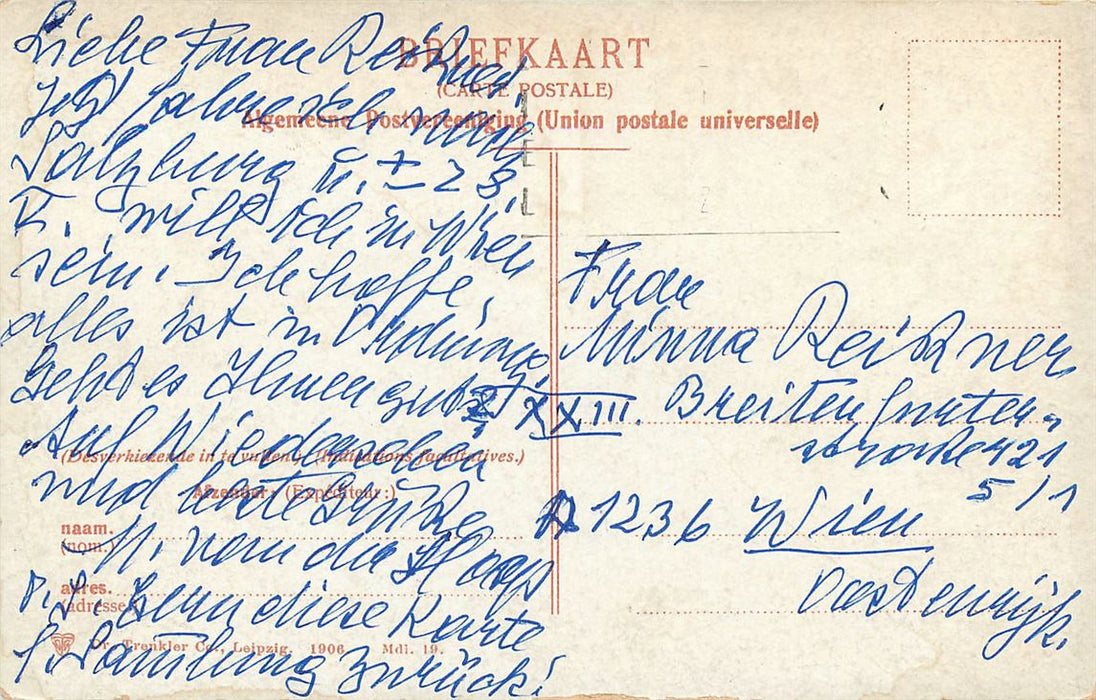 BRIEFKAART
(CARTE POSTALE)
Algemeene Postvereeniging (Union postale universelle)
Liebe Frau Reitzner
Jetzt fahre ich nach
Salzburg u. ± 28.
will ich in Wien
sein. Ich hoffe,
alles ist in Ordnung.
Geht es Ihnen gut?
Auf Wiedersehen
und beste Grüße
M. van der
P.S. Gern diese Karte
f. Samlung zurück!
Frau
Minna Reitzner
XXIII. Breitenfurter-
straße 421
5/1
A 1236 Wien
Oostenrijk.
(Desverkiezende in te vullen). (Indications facultatives.)
Afzender: (Expéditeur:)
naam.
(nom.)
adres.
(adresse)
Dr. Trenkler Co., Leipzig. 1906 Mdl. 19.